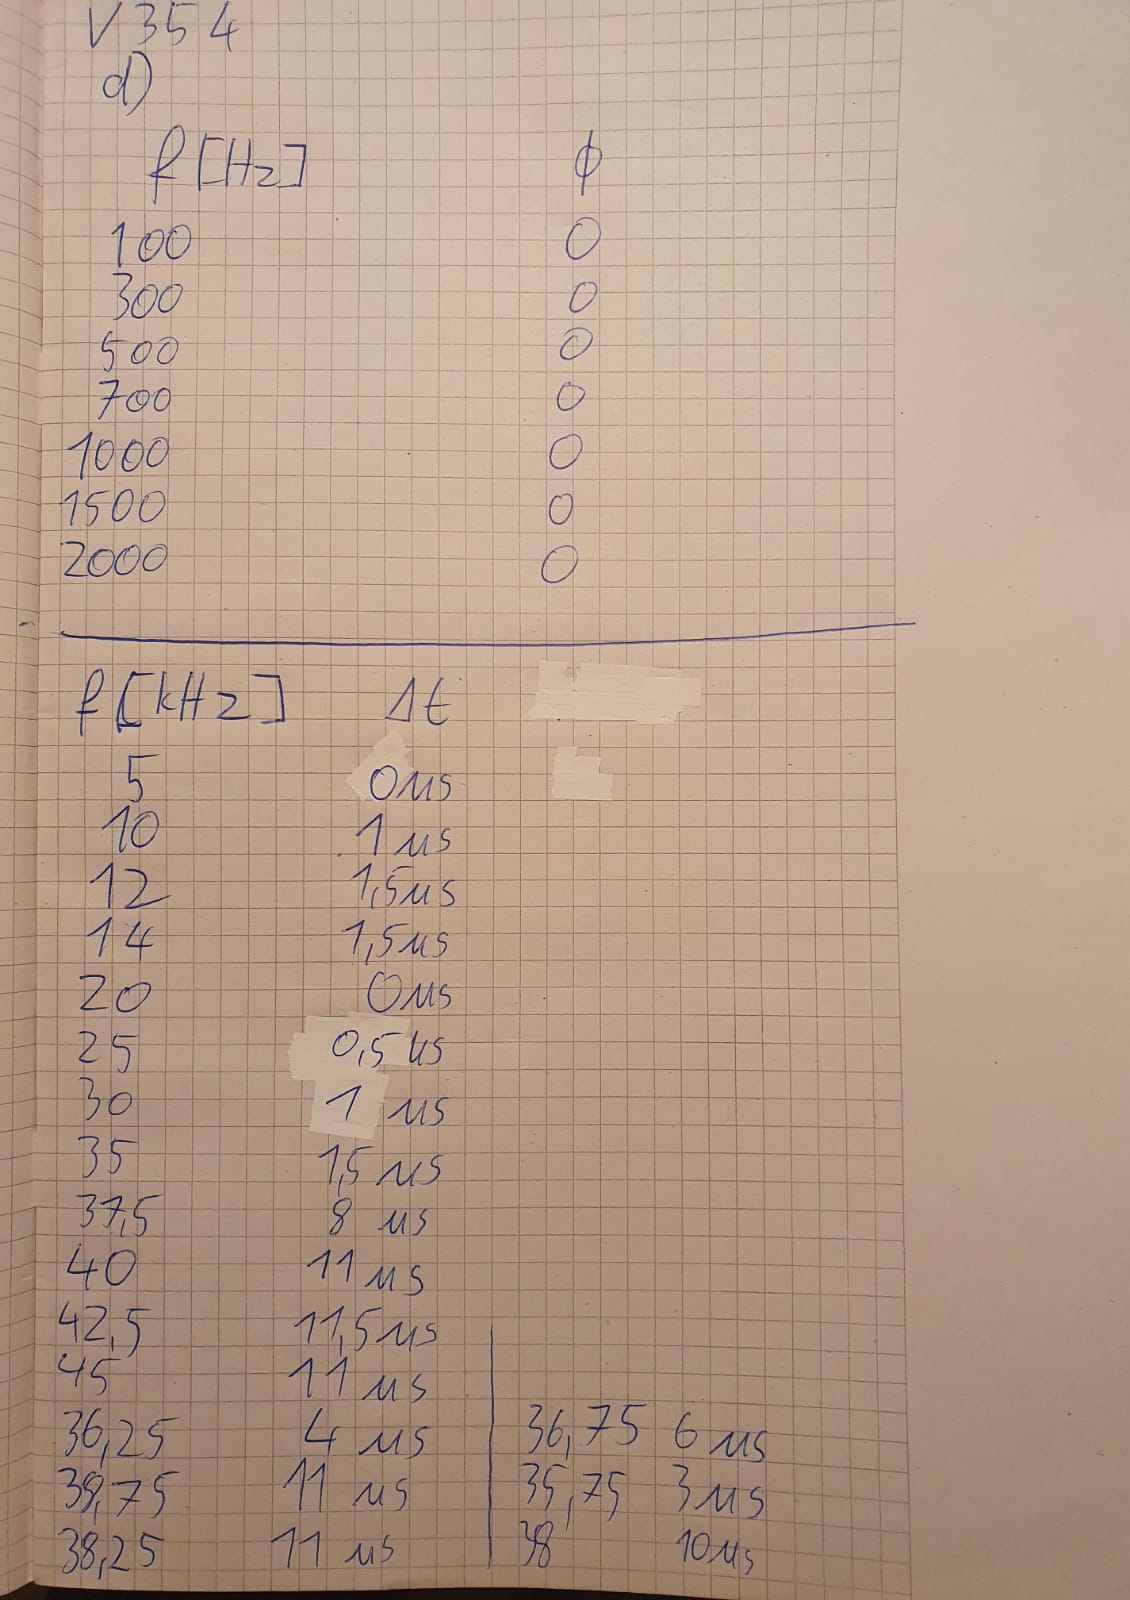 V354
d)
f [Hz] ϕ
100 0
300 0
500 0
700 0
1000 0
1500 0
2000 0
f [kHz] Δt
5 0μs
10 1 μs
12 1,5μs
14 1,5μs
20 0μs
25 0,5 μs
30 1 μs
35 1,5 μs
37,5 8 μs
40 11 μs
42,5 11,5μs
45 11 μs
36,25 4 μs 36,75 6 μs
39,75 11 μs 35,75 3μs
38,25 11 μs 38 10μs